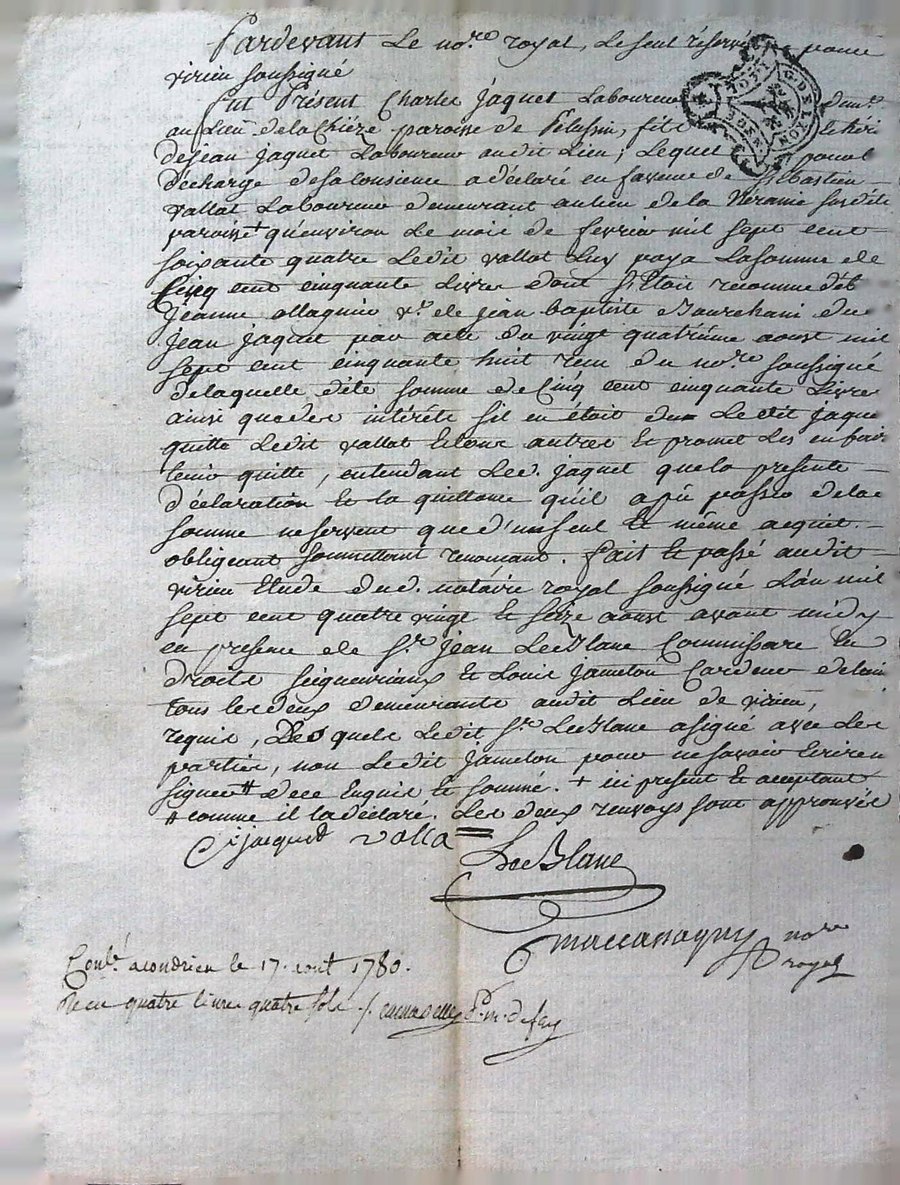 Pardevant Le no.re royal, le seul réservé pour
virieu soussigné
fut Présent Charles Jaquet Laboureur dem.t
au Lieu de la Chieze paroisse de Pelussin, fils
dejean jaquet Laboureur audit Lieu; Lequel pour la
décharge desa consience a déclaré en faveur de Sébastien
vallat Laboureur demeurant aulieu de la susd.te
paroisse + qu'environ Le mois de fevrier mil sept cent
soixante quatre Ledit vallat Luy paya Lasomme de
Cinq cent cinquante Livres dont s'Etoit reconnue déb
jeanne ollagnier v.e de jean baptiste du
jean jaquet par acte du vingt quatrième aoust mil
sept cent cinquante huit recu du no.re soussigné
delaquelle dite somme de Cinq cent cinquante Livres
ainsi quedes intérêts sil en était du Le dit jaque
quitte Ledit vallat Et tous autres Et promet Les en fair
tenir quitte, entendant Led. jaquet quela presente
déclaration Et la quittance quil a pu passer dela
somme neservent que d'un seul Et même acquit.
obligeant soumettant renonçant. fait Et passé audit
virieu Etude dud. notaire royal soussigné L'an mil
sept cent quatre vingt Et seize aoust avant midy
en presence de S.r jean LeBlanc Commissaire En
droits seigneuriaux Et Louis jameton Cardeur delaine
tous lesdeux demeurants audit Lieu de virieu,
requis, Desquels Ledit S.r LeBlanc asigné avec Les
parties, non Ledit jameton pour nesavoir Ecrire n
signer # dece Enquis Et sommé. + ici present Et acceptant
# comme il la déclaré. Les deux renvoys sont approuvés
C jacquet valla
LeBlanc
maccanaguy no.re
royal
Conl.é acondrieu le 17. aout 1780.
Recu quatre livres quatre sols
G. DE LYON